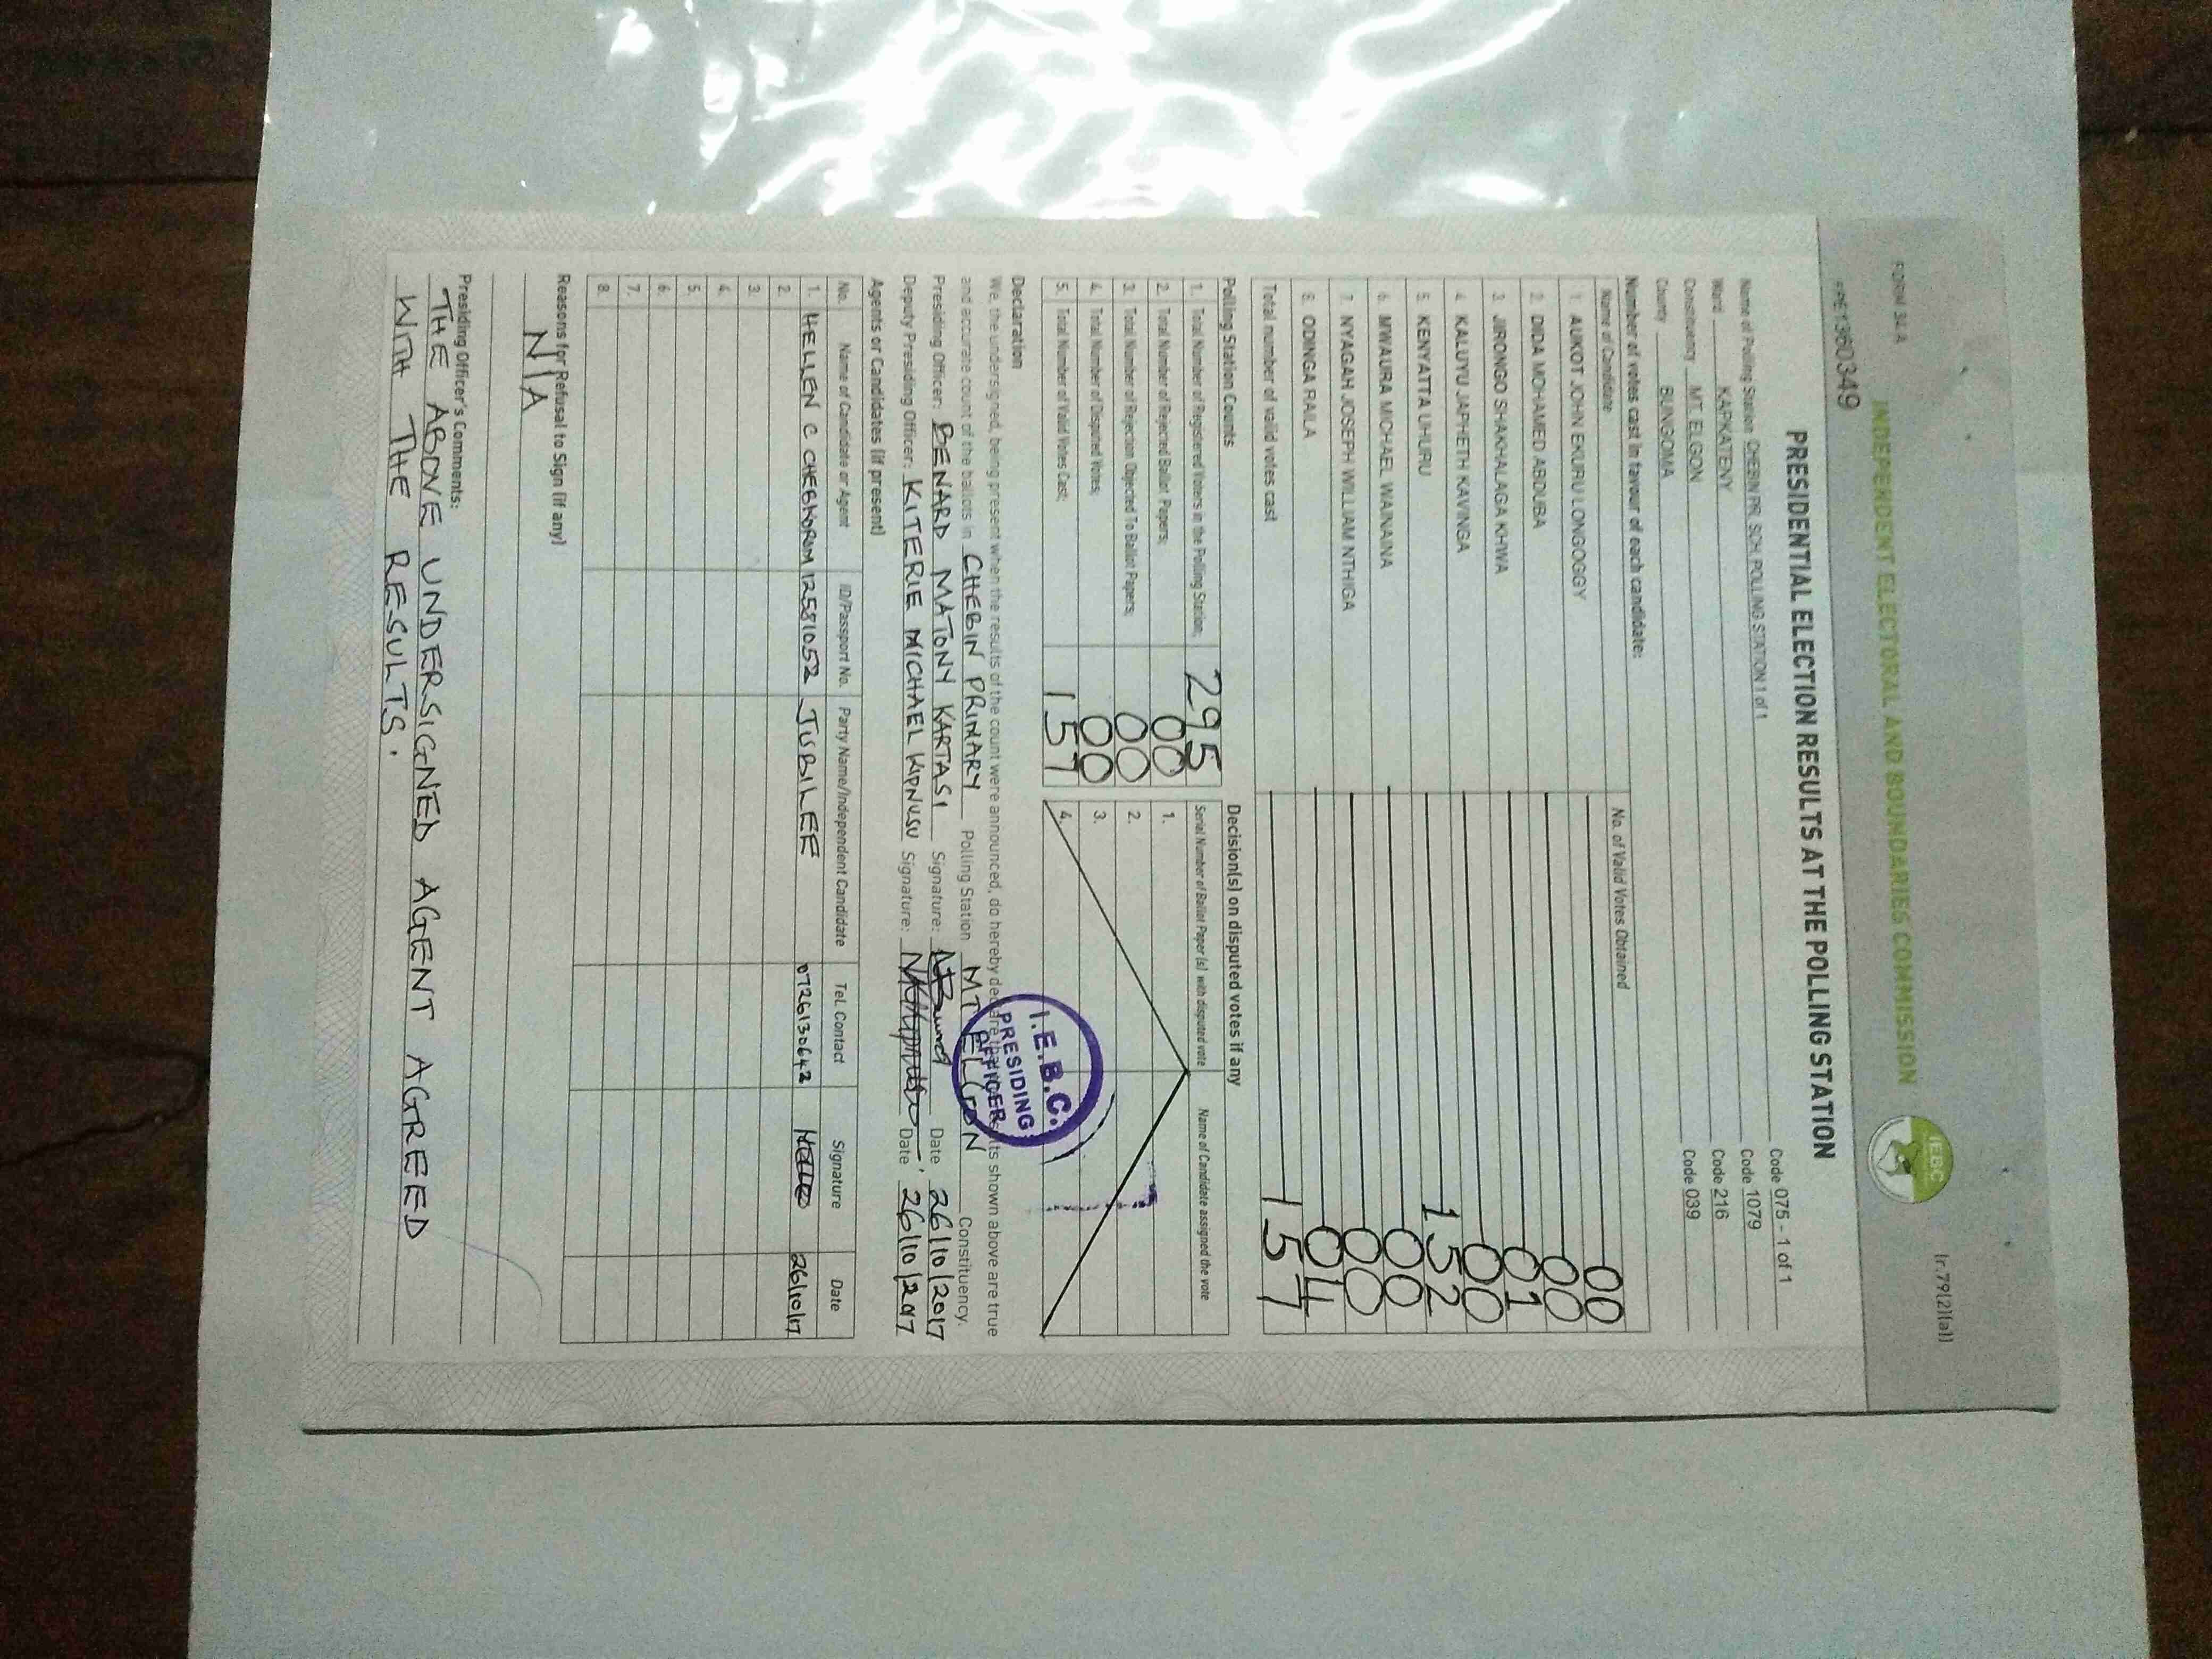 FORM 34A
Ir.79(2)(a))
INDEPENDENT ELECTORAL AND BOUNDARIES COMMISSION
IEBC
PRESIDENTIAL ELECTION RESULTS AT THE POLLING STATION
Name of Polling Station CHEBIN PR. SCH. POLLING STATION 1 of 1 Code 075 - 1 of 1
Ward KAPKATENY Code 1079
Constituency MT. ELGON Code 216
County BUNGOMA Code 039
Number of votes cast in favour of each candidate:
Name of Candidate No. of Valid Votes Obtained
1. AUKOT JOHN EKURU LONGOGGY 00
2. DIDA MOHAMED ABDUBA 00
3. JIRONGO SHAKHALAGA KHWA 01
4. KALUYU JAPHETH KAVINGA 00
5. KENYATTA UHURU 152
6. MWAURA MICHAEL WAINAINA 00
7. NYAGAH JOSEPH WILLIAM NTHIGA 00
8. ODINGA RAILA 04
Total number of valid votes cast 157
Polling Station Counts Decision(s) on disputed votes if any
1. Total Number of Registered Voters in the Polling Station; 295 Serial Number of Ballot Paper (s) with disputed vote Name of Candidate assigned the vote
2. Total Number of Rejected Ballot Papers; 00 1.
3. Total Number of Rejection Objected To Ballot Papers; 00 2.
4. Total Number of Disputed Votes; 00 3.
5. Total Number of Valid Votes Cast; 157 4.
Declaration
We, the undersigned, being present when the results of the count were announced, do hereby declare that the results shown above are true
and accurate count of the ballots in CHEBIN PRIMARY Polling Station MT ELGON Constituency.
I.E.B.C.
PRESIDING
OFFICER
Presiding Officer: BENARD MATONY KARTASI Signature: Date 26/10/2017
Deputy Presiding Officer: KITERIE MICHAEL KIPNUSU Signature: Date 26/10/2017
Agents or Candidates (if present)
No. Name of Candidate or Agent ID/Passport No. Party Name/Independent Candidate Tel. Contact Signature Date
1. HELLEN C 12581052 JUBILEE 0726130642 26/10/17
2.
3.
4.
5.
6.
7.
8.
Reasons for Refusal to Sign (if any)
N/A
Presiding Officer's Comments:
THE ABOVE UNDERSIGNED AGENT AGREED
WITH THE RESULTS.